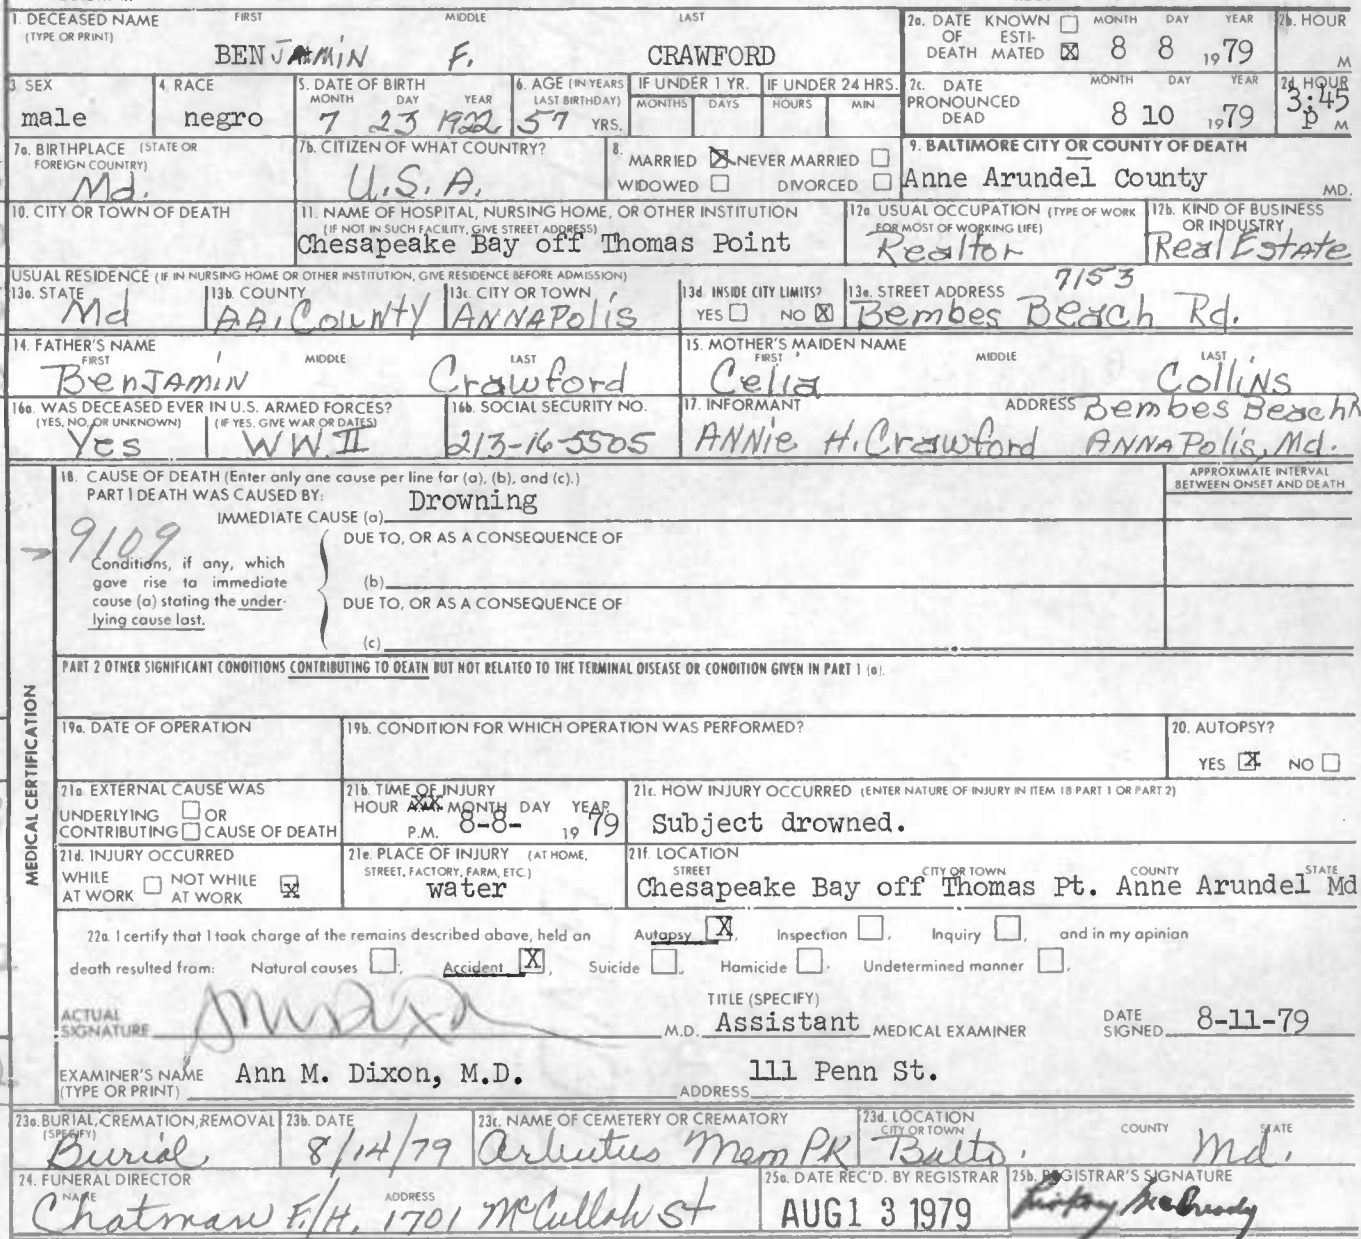 1. DECEASED NAME FIRST MIDDLE LAST
(TYPE OR PRINT)
BENJAMIN F. CRAWFORD
2a. DATE KNOWN MONTH DAY YEAR
OF ESTI-
DEATH MATED X 8 8 1979
2b. HOUR
M
3 SEX
male
4 RACE
negro
5. DATE OF BIRTH
MONTH DAY YEAR
7 23 1922
6. AGE (IN YEARS
LAST BIRTHDAY)
57 YRS.
IF UNDER 1 YR.
MONTHS DAYS
IF UNDER 24 HRS.
HOURS MIN
2c. DATE MONTH DAY YEAR
PRONOUNCED
DEAD 8 10 1979
2d. HOUR
3:45
P M
7a. BIRTHPLACE (STATE OR
FOREIGN COUNTRY)
Md.
7b. CITIZEN OF WHAT COUNTRY?
U.S.A.
8.
MARRIED X NEVER MARRIED
WIDOWED DIVORCED
9. BALTIMORE CITY OR COUNTY OF DEATH
Anne Arundel County MD.
10. CITY OR TOWN OF DEATH
11. NAME OF HOSPITAL, NURSING HOME, OR OTHER INSTITUTION
(IF NOT IN SUCH FACILITY, GIVE STREET ADDRESS)
Chesapeake Bay off Thomas Point
12a USUAL OCCUPATION (TYPE OF WORK
FOR MOST OF WORKING LIFE)
Realtor
12b. KIND OF BUSINESS
OR INDUSTRY
Real Estate
USUAL RESIDENCE (IF IN NURSING HOME OR OTHER INSTITUTION, GIVE RESIDENCE BEFORE ADMISSION)
13a. STATE
Md
13b. COUNTY
AA, County
13c. CITY OR TOWN
ANNAPOLIS
13d. INSIDE CITY LIMITS?
YES NO X
13e. STREET ADDRESS 7153
Bembes Beach Rd.
14. FATHER'S NAME
FIRST MIDDLE LAST
BenJAMIN Crawford
15. MOTHER'S MAIDEN NAME
FIRST MIDDLE LAST
Celia Collins
16a. WAS DECEASED EVER IN U.S. ARMED FORCES?
(YES, NO, OR UNKNOWN) (IF YES, GIVE WAR OR DATES)
Yes WW II
16b. SOCIAL SECURITY NO.
213-16-5505
17. INFORMANT ADDRESS Bembes Beach R
ANNie H. Crawford ANNAPolis, Md.
18. CAUSE OF DEATH (Enter only one cause per line for (a), (b), and (c).)
PART I DEATH WAS CAUSED BY:
IMMEDIATE CAUSE (a) Drowning
APPROXIMATE INTERVAL
BETWEEN ONSET AND DEATH
9109
DUE TO, OR AS A CONSEQUENCE OF
Conditions, if any, which
gave rise to immediate
cause (a) stating the under-
lying cause last.
(b)
DUE TO, OR AS A CONSEQUENCE OF
(c)
PART 2 OTHER SIGNIFICANT CONDITIONS CONTRIBUTING TO DEATH BUT NOT RELATED TO THE TERMINAL DISEASE OR CONDITION GIVEN IN PART 1 (a).
MEDICAL CERTIFICATION
19a. DATE OF OPERATION
19b. CONDITION FOR WHICH OPERATION WAS PERFORMED?
20. AUTOPSY?
YES X NO
21a EXTERNAL CAUSE WAS
UNDERLYING OR
CONTRIBUTING CAUSE OF DEATH
21b. TIME OF INJURY
HOUR A.M. MONTH DAY YEAR
P.M. 8-8- 19 79
21c. HOW INJURY OCCURRED (ENTER NATURE OF INJURY IN ITEM 18 PART 1 OR PART 2)
Subject drowned.
21d. INJURY OCCURRED
WHILE NOT WHILE
AT WORK AT WORK X
21e. PLACE OF INJURY (AT HOME,
STREET, FACTORY, FARM, ETC.)
water
21f. LOCATION
STREET CITY OR TOWN COUNTY STATE
Chesapeake Bay off Thomas Pt. Anne Arundel Md
22a. I certify that I took charge of the remains described above, held an Autopsy X, Inspection , Inquiry , and in my opinion
death resulted from: Natural causes , Accident X, Suicide , Homicide , Undetermined manner .
ACTUAL
SIGNATURE
TITLE (SPECIFY)
M.D. Assistant MEDICAL EXAMINER
DATE
SIGNED 8-11-79
EXAMINER'S NAME
(TYPE OR PRINT) Ann M. Dixon, M.D.
ADDRESS 111 Penn St.
23a. BURIAL, CREMATION, REMOVAL
(SPECIFY)
Burial
23b. DATE
8/14/79
23c. NAME OF CEMETERY OR CREMATORY
Arbutus Mem PK
23d. LOCATION
CITY OR TOWN COUNTY STATE
Balto. Md.
24. FUNERAL DIRECTOR
NAME ADDRESS
Chatman F/H. 1701 McCulloh St
25a. DATE REC'D. BY REGISTRAR
AUG 13 1979
25b. REGISTRAR'S SIGNATURE